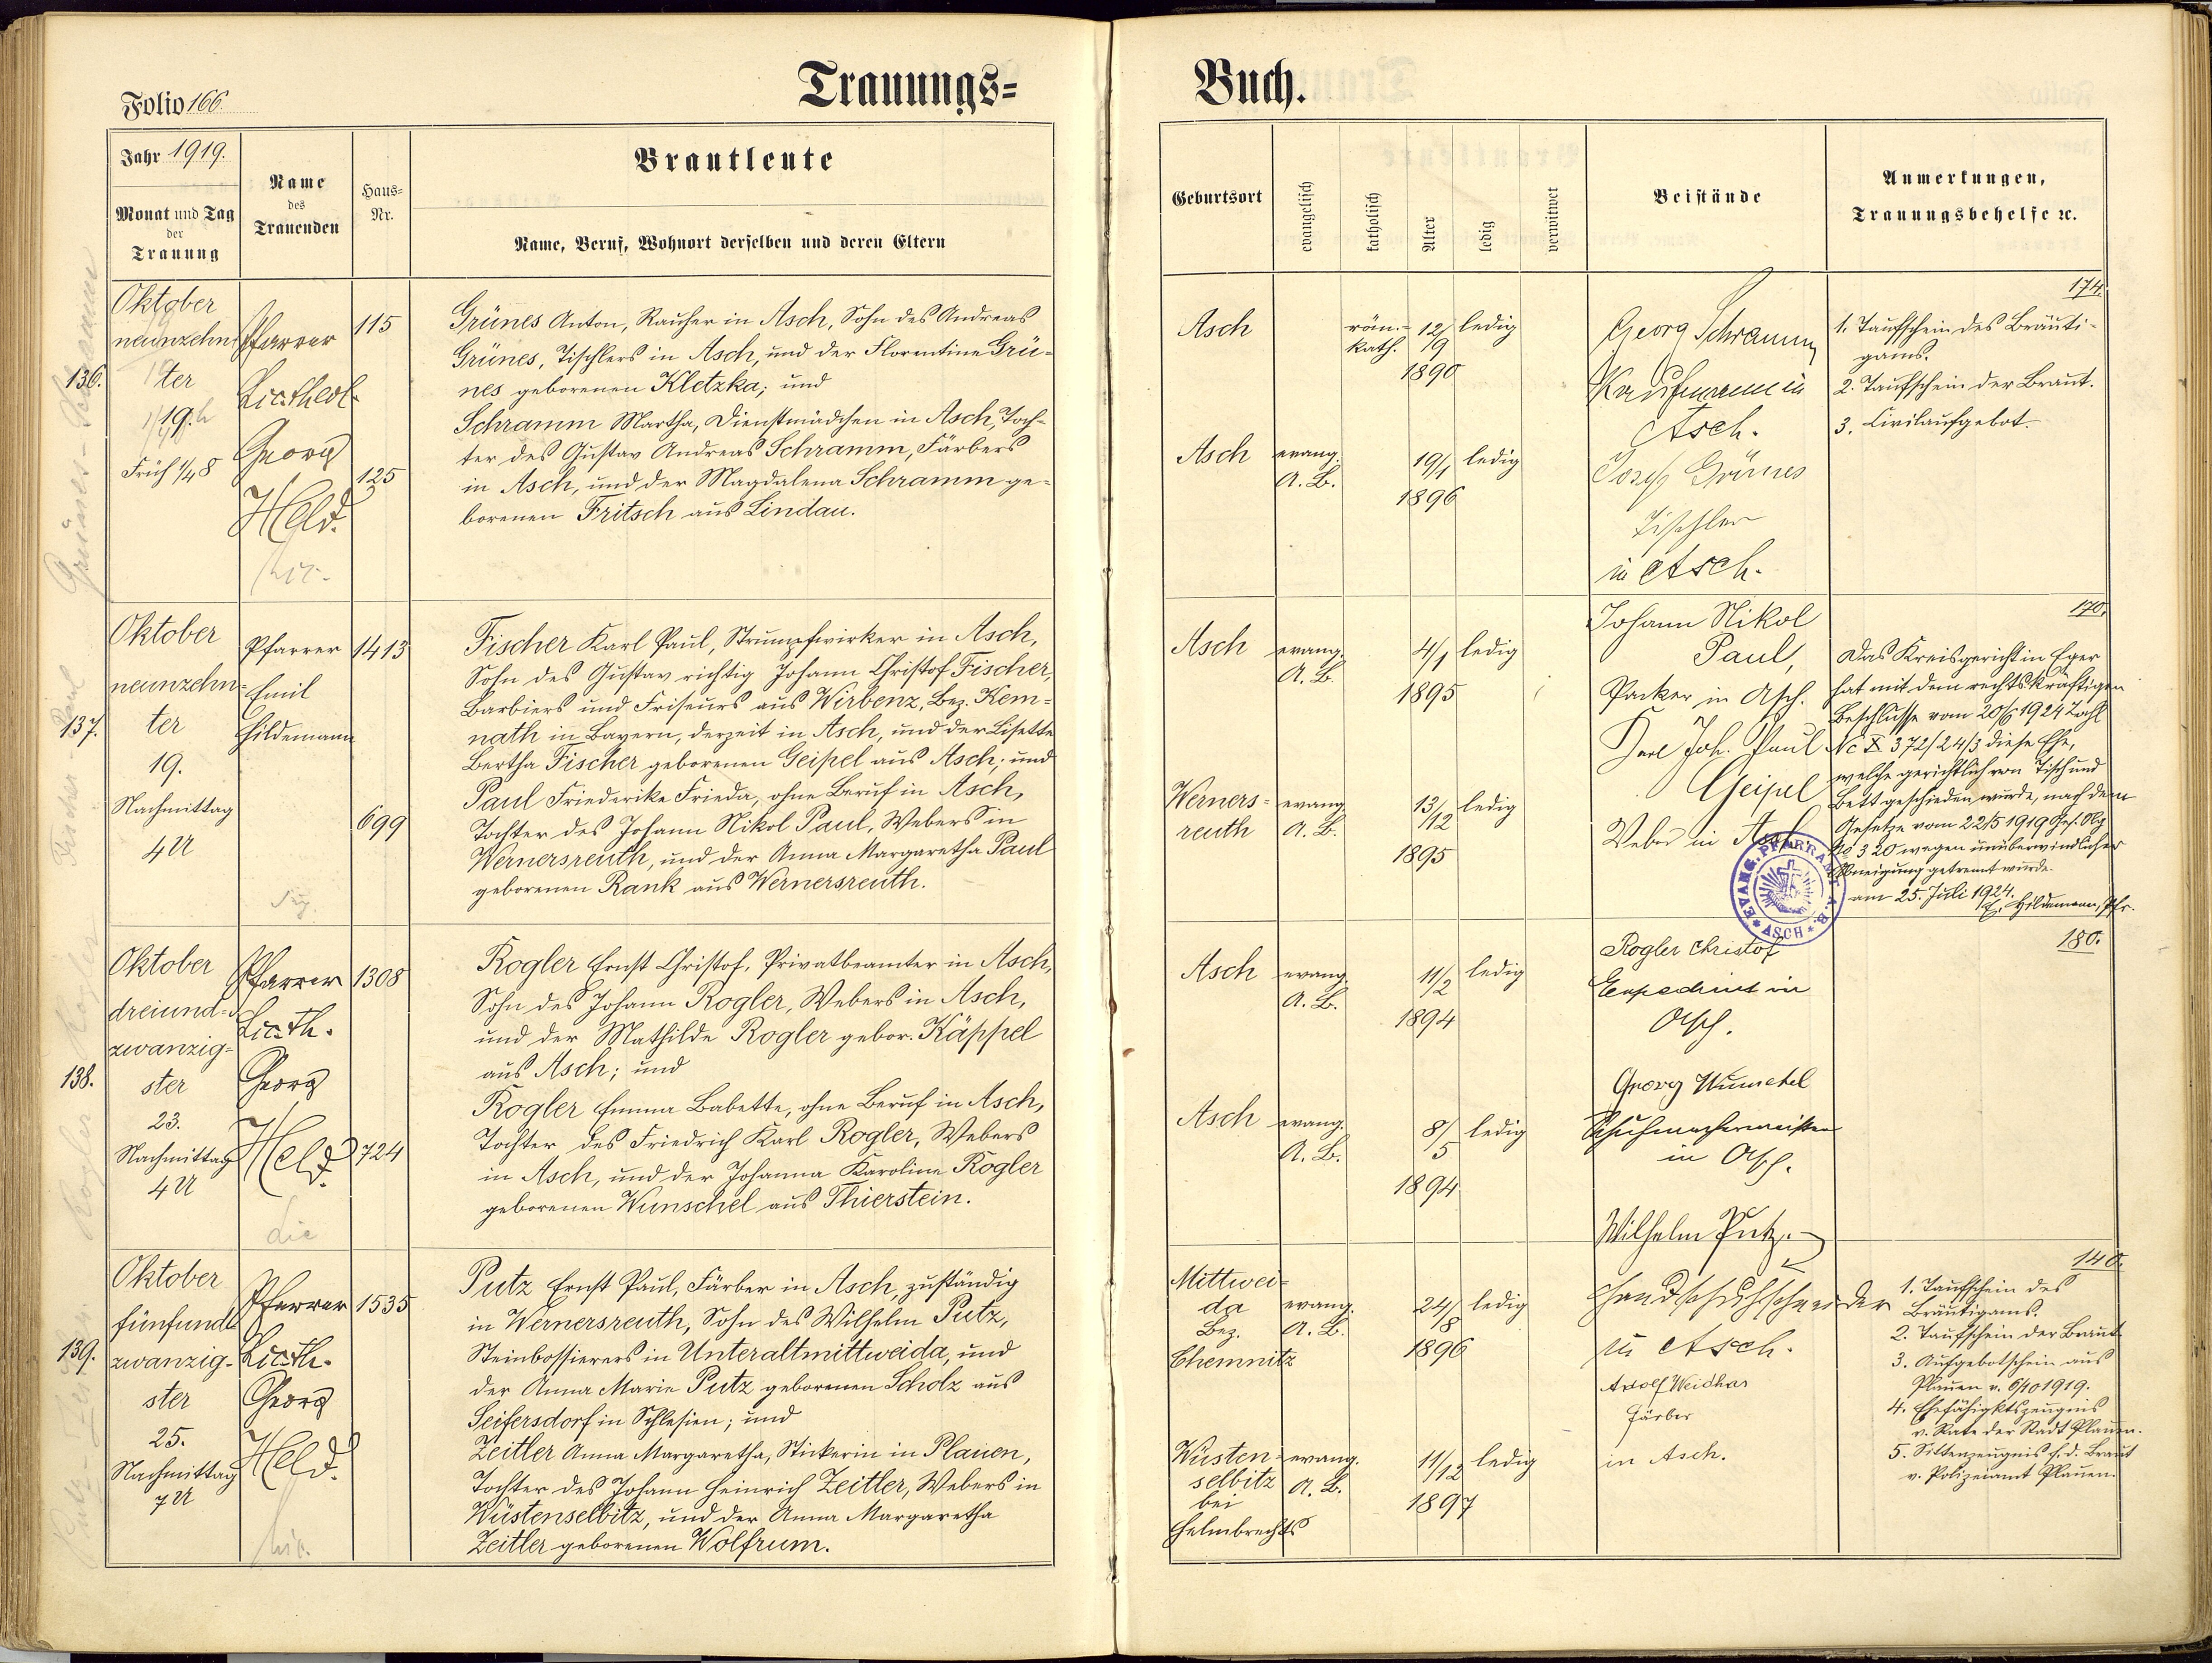 Trauungs=
Buch.
Folio 166.
Jahr 1919.
Monat und Tag
der
Trauung
Name
des
Trauenden
Haus=
Nr.
Brautleute
Name, Beruf, Wohnort derselben und deren Eltern
Geburtsort
evangelisch
katholisch
Alter
ledig
verwitwet
Beistände
Anmerkungen,
Trauungsbehelfe ꝛc.
136.
Oktober
neunzehn-
ter
19.
Früh 1/48
Pfarrer
Lic. theol.
Georg
Held.
115
125
Grünes Anton, Raucher in Asch, Sohn des Andreas
Grünes, Tischlers in Asch, und der Florentine Grü-
nes geborenen Kletzka; und
Schramm Martha, Dienstmädchen in Asch, Toch-
ter des Gustav Andreas Schramm, Färbers
in Asch, und der Magdalena Schramm ge-
borenen Fritsch aus Lindau.
Asch
röm.-
kath.
12/9
1890
ledig
Asch
evang.
A. B.
19/1
1896
ledig
Georg Schramm
Kaufmann in
Asch.
Josef Grünes
Tischler
in Asch.
174.
1. Taufschein des Bräuti-
gams.
2. Taufschein der Braut.
3. Civilaufgebot.
137.
Oktober
neunzehn-
ter
19.
Nachmittag
4 U
Pfarrer
Emil
Hildemann
1413
699
Fischer Karl Paul, Strumpfwirker in Asch,
Sohn des Gustav richtig Johann Christof Fischer,
Barbiers und Friseurs aus Wirbenz, Bez. Kem-
nath in Bayern, derzeit in Asch, und der Lisette
Bertha Fischer geborenen Geipel aus Asch; und
Paul Friederike Frieda, ohne Beruf in Asch,
Tochter des Johann Nikol Paul, Webers in
Wernersreuth, und der Anna Margaretha Paul
geborenen Rank aus Wernersreuth.
Asch
evang.
A. B.
4/1
1895
ledig
Werners-
reuth
evang.
A. B.
13/12
1895
ledig
Johann Nikol
Paul,
Packer in Asch.
Karl Joh. Paul
Geipel
Weber in Asch
170.
Das Kreisgericht in Eger
hat mit dem rechtskräftigen
Beschlusse vom 20/6 1924 Zahl
Nc X 372/24/3 diese Ehe,
welche gerichtlich von Tisch und
Bett geschieden wurde, nach dem
Gesetze vom 22/5 1919 Ges. Slg
No 320 wegen unüberwindlicher
Abneigung getrennt wurde.
am 25. Juli 1924.
E. Hildemann, Pfr.
EVANG. PFARRAMT A. B.
ASCH
138.
Oktober
dreiund-
zwanzig-
ster
23.
Nachmittag
4 U
Pfarrer
Lic. th.
Georg
Held.
1308
724
Rogler Ernst Christof, Privatbeamter in Asch,
Sohn des Johann Rogler, Webers in Asch,
und der Mathilde Rogler gebor. Käppel
aus Asch; und
Rogler Emma Babette, ohne Beruf in Asch,
Tochter des Friedrich Karl Rogler, Webers
in Asch, und der Johanna Karoline Rogler
geborenen Wunschel aus Thierstein.
Asch
evang.
A. B.
11/2
1894
ledig
Asch
evang.
A. B.
8/5
1894
ledig
Rogler Christof
Expedient in
Asch.
Georg Wunschel
Schuhmachermeister
in Asch.
180.
139.
Oktober
fünfund-
zwanzig-
ster
25.
Nachmittag
7 U
Pfarrer
Lic. th.
Georg
Held.
1535
Putz Ernst Paul, Färber in Asch, zuständig
in Wernersreuth, Sohn des Wilhelm Putz,
Steinbossierers in Unteraltmittweida, und
der Anna Marie Putz geborenen Scholz aus
Seifersdorf in Schlesien; und
Zeitler Anna Margaretha, Stickerin in Plauen,
Tochter des Johann Heinrich Zeitler, Webers in
Wüstenselbitz, und der Anna Margaretha
Zeitler geborenen Wolfrum.
Mittwei-
da
Bez.
Chemnitz
evang.
A. B.
24/8
1896
ledig
Wüsten-
selbitz
bei
Helmbrechts
evang.
A. B.
11/12
1897
ledig
Wilhelm Putz.
Handschuhschneider
in Asch.
Adolf Weidhas
Färber
in Asch.
140.
1. Taufschein des
Bräutigams.
2. Taufschein der Braut
3. Aufgebotschein aus
Plauen v. 6/10 1919.
4. Ehefähigktszeugnis
v. Rate der Stadt Plauen.
5. Sittenzeugnis f. d. Braut
v. Polizeiamt Plauen.